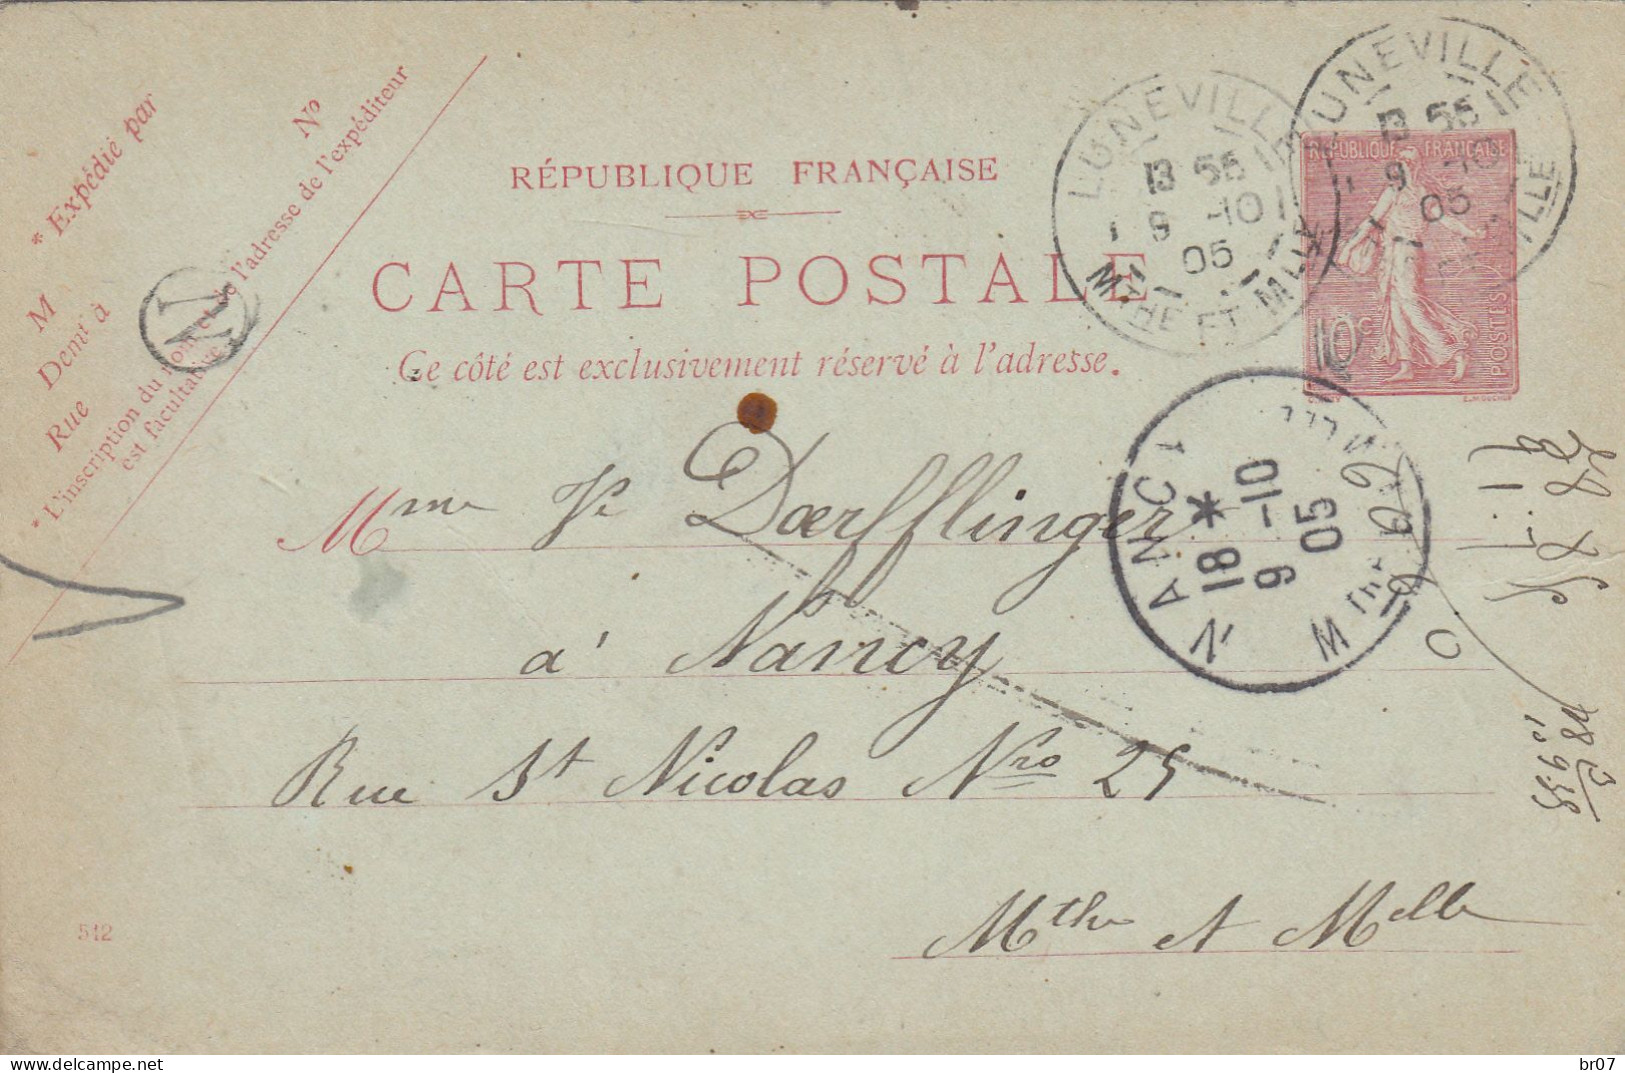 * Expédié par
M
Demt à
Rue
No
* L'inscription du nom et de l'adresse de l'expéditeur
est facultative.
N
RÉPUBLIQUE FRANÇAISE
CARTE POSTALE
Ce côté est exclusivement réservé à l'adresse.
LUNEVILLE
13 55
9 -10
05
MTHE ET MLLE
LUNEVILLE
13 55
9 -10
05
RÉPUBLIQUE FRANÇAISE
10c
POSTES
Mme Ve Dœrfflinger
à Nancy
Rue St Nicolas Nro 25
Mthe et Melle
NANCY
18 *
9 -10
05
512
delcampe.net
br07